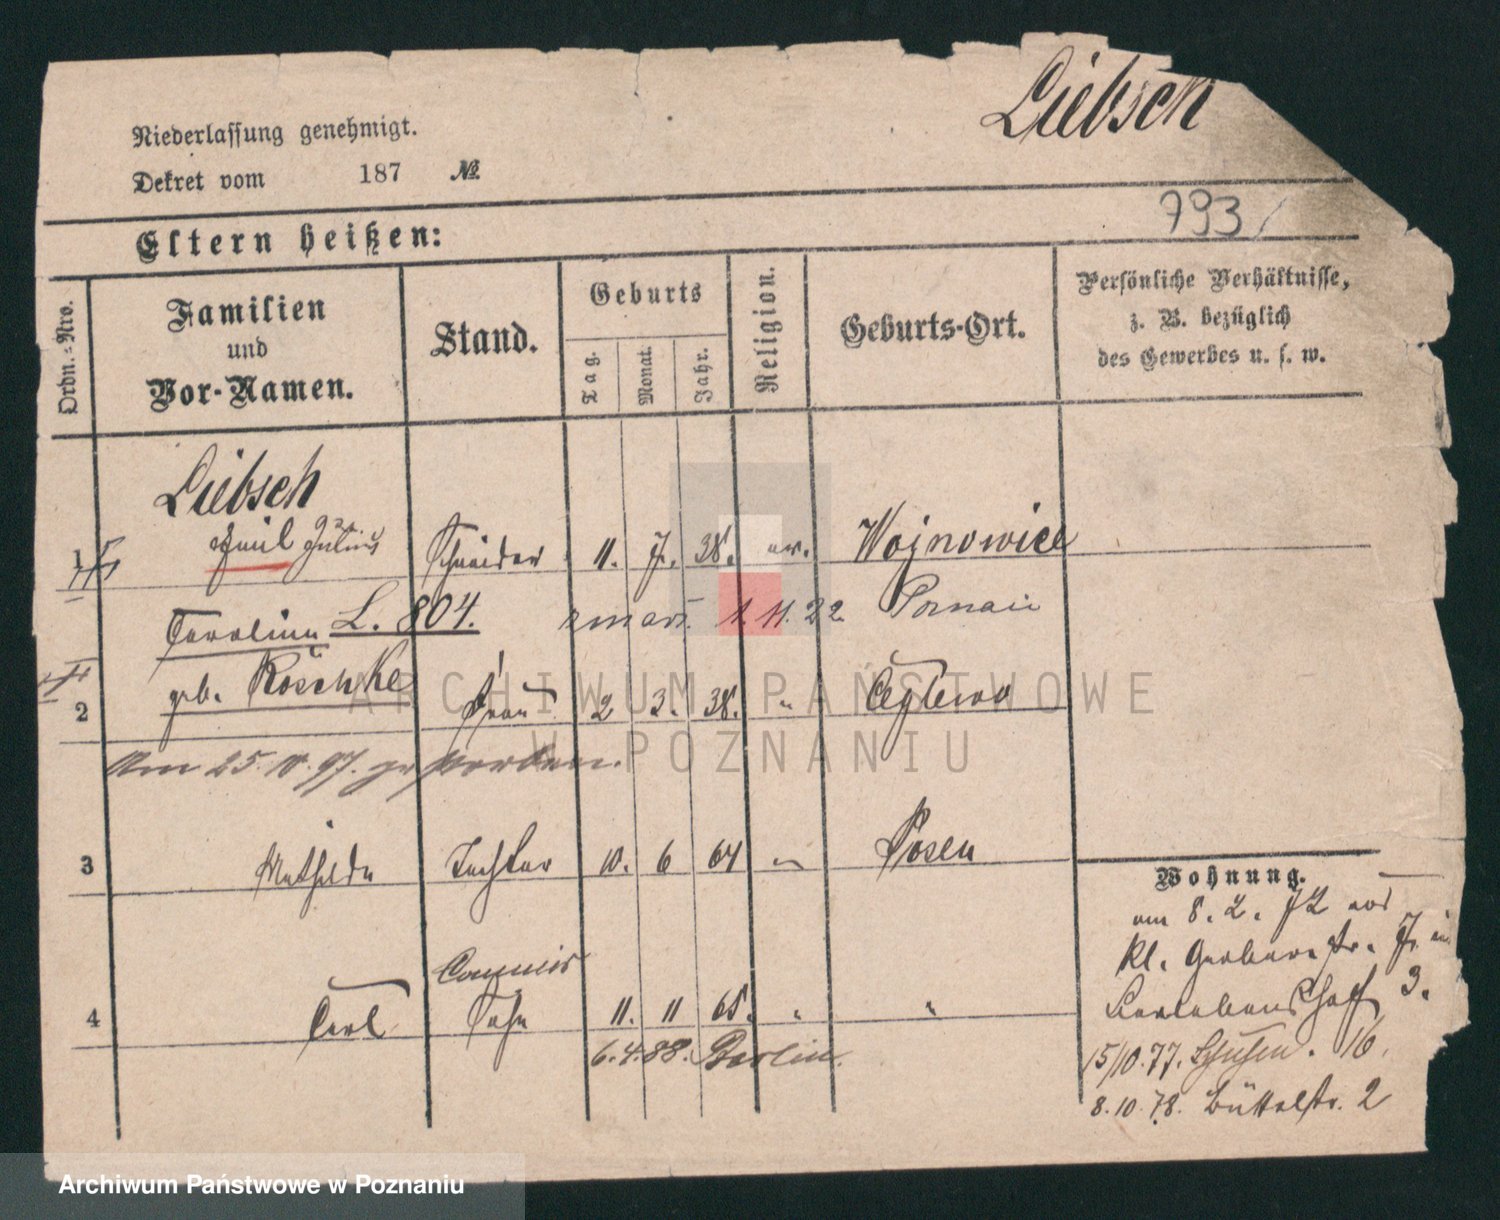 Liebsch
Niederlassung genehmigt.
Dekret vom 187 №
793
Eltern heißen:
Ordn.-Nro.
Familien
und
Vor-Namen.
Stand.
Geburts
Tag.
Monat.
Jahr.
Religion.
Geburts-Ort.
Persönliche Verhältnisse,
z. B. bezüglich
des Gewerbes u. s. w.
Liebsch
1 Emil Julius Schneider 11. 7. 38. ev. Wojnowice
Caroline L. 804. zmarł. 1. 11. 22 Poznań
geb. Röschke
2 Frau 2 3. 38. "
Am 25. 10. 97. gestorben.
3 Mathilde Tochter 10. 6 64 " Posen
Commis
4 Carl Sohn 11. 11 68. " "
6. 4. 88. Berlin.
Wohnung.
am 8. 2. 72 aus
Kl. Gerberstr. 7. in
3.
15/10. 77. 16.
8. 10. 78. Büttelstr. 2
ARCHIWUM PAŃSTWOWE
W POZNANIU
Archiwum Państwowe w Poznaniu